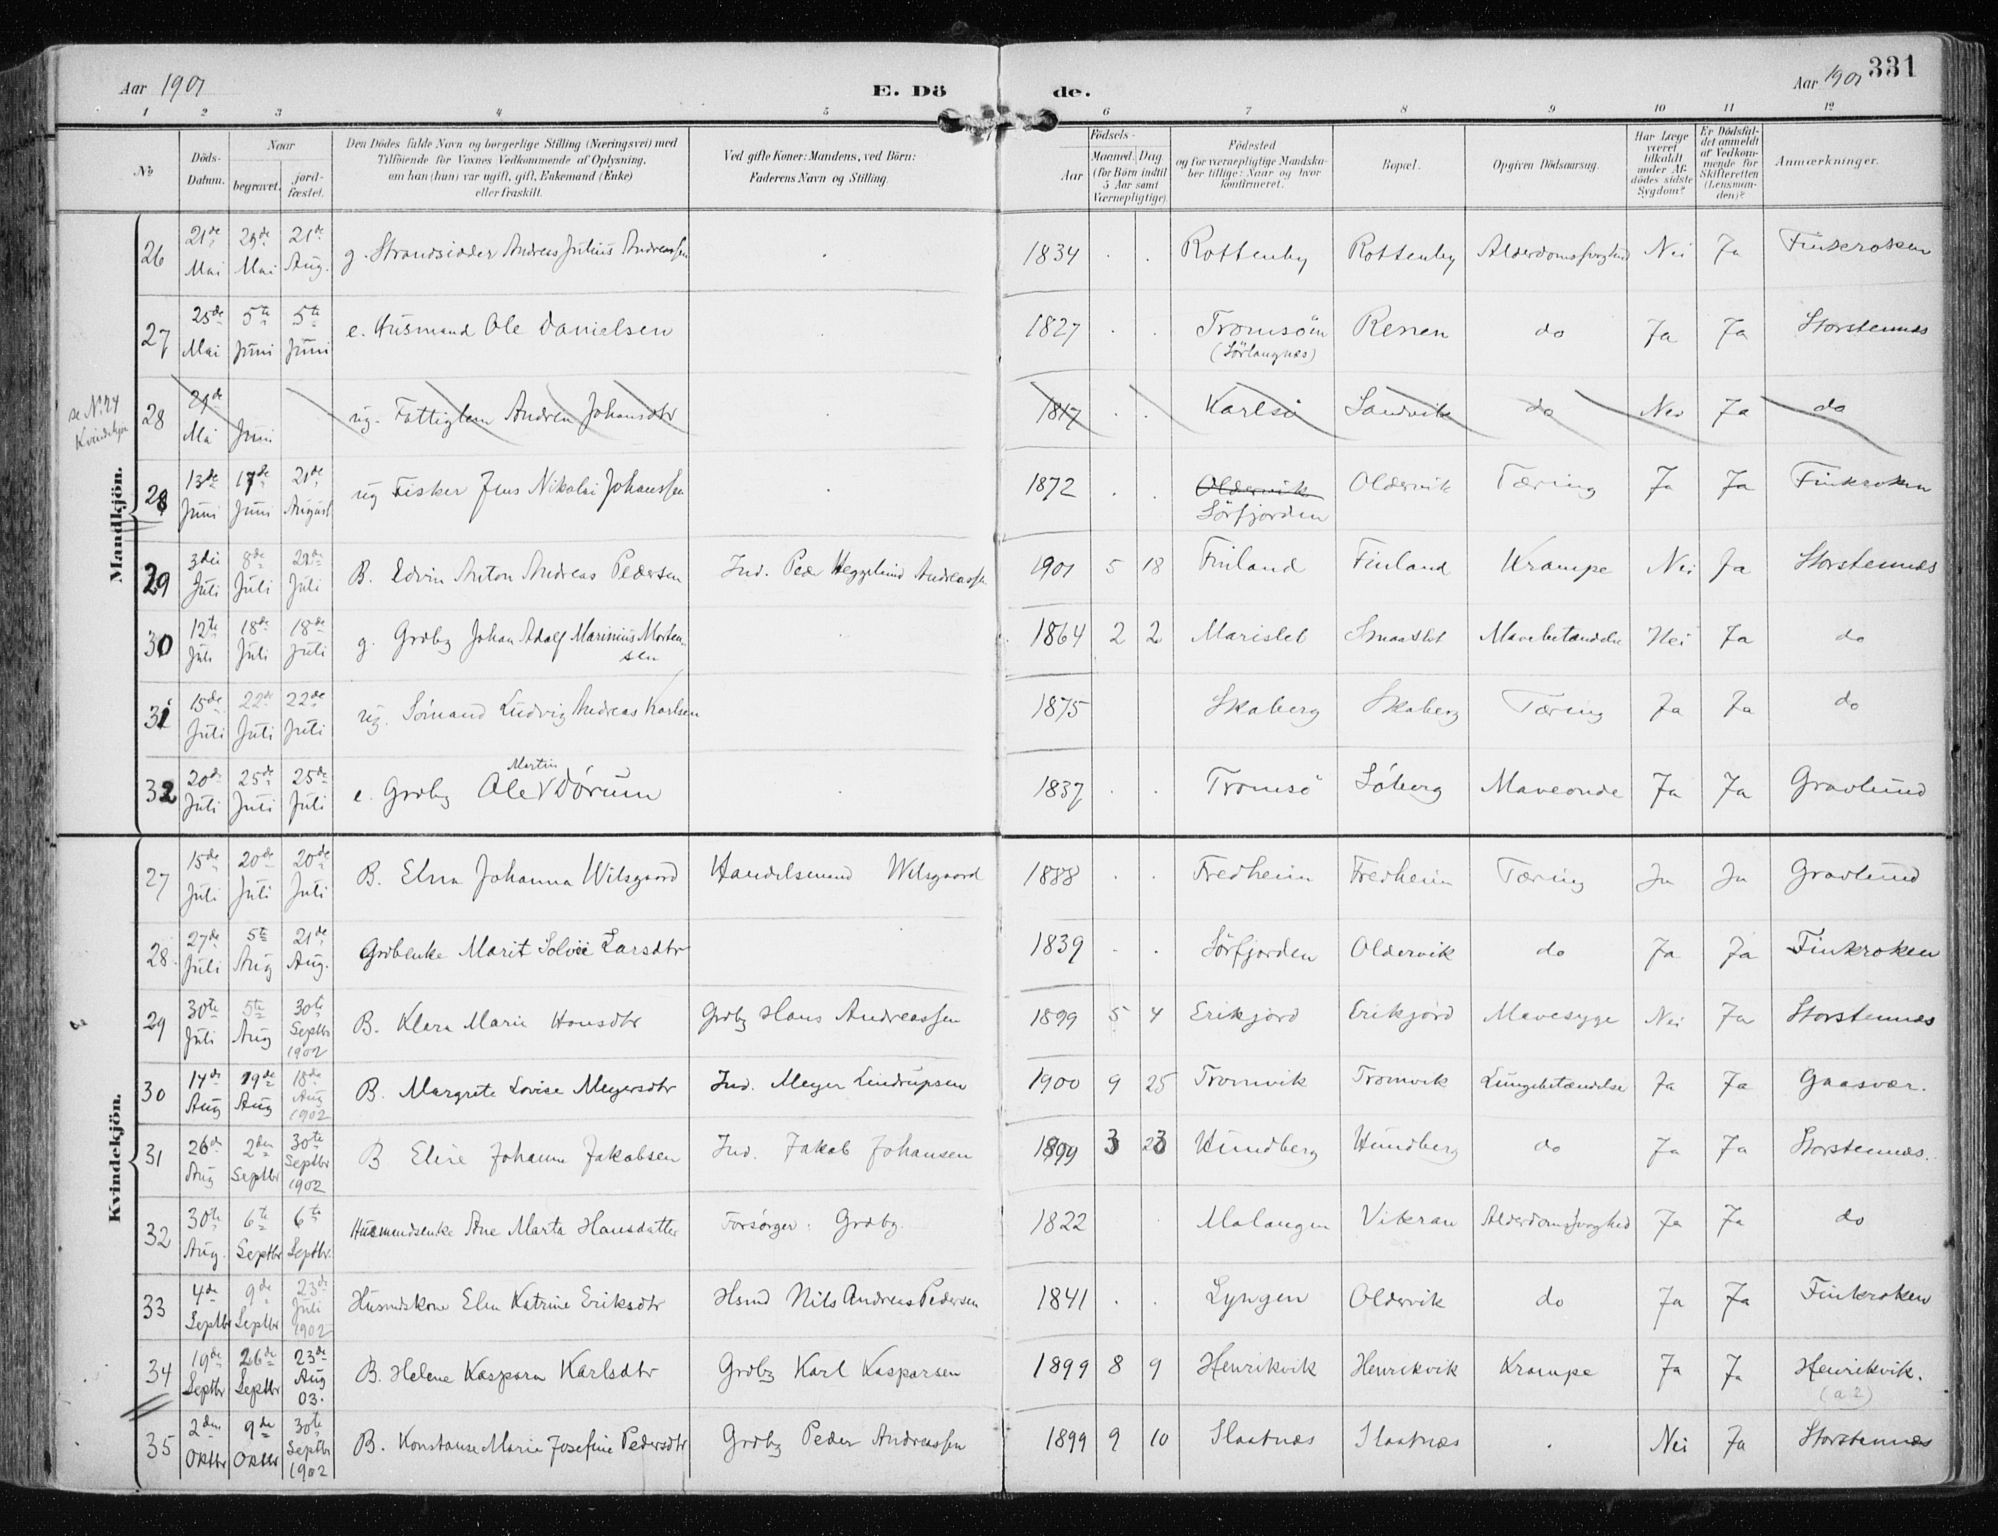 Aar 1901
E. Dö
de.
Aar 1901
331
1 2 3 4 5 6 7 8 9 10 11 12
No
Döds-Datum.
Naar
begravet.
jord-fæstet.
Den Dödes fulde Navn og borgerlige Stilling (Næringsvei) med
Tilföiende for Voxnes Vedkommende af Oplysning,
om han (hun) var ugift, gift, Enkemand (Enke)
eller fraskilt.
Ved gifte Koner: Mandens, ved Börn:
Faderens Navn og Stilling.
Födsels-
Aar
Maaned. Dag
(for Börn indtil
5 Aar samt
Værnepligtige)
Födested
og for værnepligtige Mandsku-
ber tillige: Naar og hvor
konfirmeret.
Bopæl.
Opgiven Dödsaarsag.
Har Læge
været
tilkaldt
under Af-
dödes sidste
Sygdom?
Er Dödsfal-
det anmeldt
af Vedkom-
mende for
Skifteretten
(Lensman-
den)?
Anmærkninger.
Mandkjön.
26 21de Mai 29de Mai 21de Aug. g. Strandsidder Andreas Julius Andreassen . 1834 . . Rottenby Rottenby Alderdomssvaghed Nei Ja Finkroken
27 25de Mai 5te Juni 5te Juni e. Husmand Ole Danielsen . 1827 . . Tromsöen (Sörlangnes) Renen do Ja Ja Storstennæs
se No 24 Kvindekjøn
28 29de Mai Juni ug. Fattiglem Andrea Johansdtr . 1817 . . Karlsö Sandvik do Nei Ja do
28 13de Juni 17de Juni 21de August ug Fisker Jens Nikolai Johanssen . 1872 . . Oldervik Sörfjorden Oldervik Tæring Ja Ja Finkroken
29 3die Juli 8de Juli 29de Juli B. Edvin Anton Andreas Pedersen Ind. Peder Heggelund Andreassen 1901 5 18 Finland Finland Krampe Nei Ja Storstennæs
30 12te Juli 18de Juli 18de Juli g. Grdbg Johan Adolf Marinius Mortensen . 1864 2 2 Marislet Smaaslet Mavebetændelse Nei Ja do
31 15de Juli 22de Juli 22de Juli ug. Sömand Ludvig Andreas Karlsen 1875 Skaberg Skaberg Tæring Ja Ja do
32 20de Juli 25de Juli 25de Juli e. Grdbg Ole Martin Dörum . 1837 . . Tromsö Söberg Maveonde Ja Ja Gravlund
Kvindekjön.
27 15de Juli 20de Juli 20de Juli B. Elna Johanna Wilsgaard Handelsmand Wilsgaard 1888 . . Fredheim Fredheim Tæring Ja Ja Gravlund
28 27de Juli 5te Aug 21de Aug. Grdbenke Marit Solvei Larsdtr 1839 . . Sörfjorden Oldervik do Ja Ja Finkroken
29 30te Juli 5te Aug 30te Septbr 1902 B. Klara Marie Hansdtr Grdbg Hans Andreassen 1899 5 4 Erikjord Erikjord Mavesyge Nei Ja Storstennæs
30 14de Aug 19de Aug 18de Aug 1902 B. Margrete Lovise Meyersdtr Ind. Meyer Lindrupsen 1900 9 25 Tromvik Tromvik Lungebetændelse Ja Ja Gaasvær.
31 26de Aug 2den Septbr 30te Septbr 1902 B Elise Johanne Jakobsen Ind. Jakob Johansen 1899 3 23 Hundberg Hundberg do Ja Ja Storstennæs.
32 30te Aug. 6te Septbr 6te Septbr. Husmandsenke Ane Marta Hansdatter Forsörger: Grdbg. 1822 . Malangen Vikran Alderdomssvaghed Ja Ja do
33 4de Septbr 9de Septbr 23de Juli 1902 Husmdskone Elen Katrine Eriksdtr Hsmd Nils Andreas Pedersen 1841 . . Lyngen Oldervik do Ja Ja Finkroken
34 19de Septbr 26de Septbr 23de Aug 03. B. Helene Kaspara Karlsdtr Grdbg Karl Kasparsen 1899 8 9 Henrikvik Henrikvik Krampe Ja Ja Henrikvik. (a 2)
35 2den Oktbr 9de Oktbr 30te Septbr 1902 B. Konstanse Marie Josefine Pedersdtr Grdbg Peder Andreassen 1899 9 10 Slaatnæs Slaatnæs . Nei Ja Storstennæs